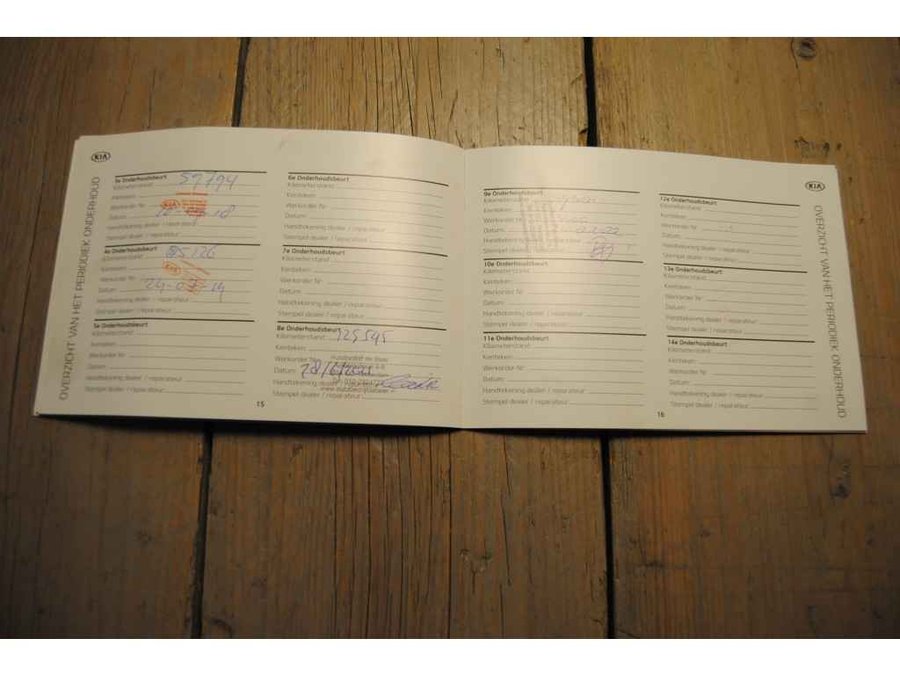 KIA
OVERZICHT VAN HET PERIODIEK ONDERHOUD
3e Onderhoudsbeurt
Kilometerstand 59794
Kenteken
Werkorder Nr
Datum
Handtekening dealer / reparateur
Stempel dealer / reparateur
4e Onderhoudsbeurt
Kilometerstand
Kenteken
Werkorder Nr
Datum
Handtekening dealer / reparateur
Stempel dealer / reparateur
5e Onderhoudsbeurt
Kilometerstand
Kenteken
Werkorder Nr
Datum
Handtekening dealer / reparateur
Stempel dealer / reparateur
6e Onderhoudsbeurt
Kilometerstand
Kenteken
Werkorder Nr
Datum
Handtekening dealer / reparateur
Stempel dealer / reparateur
7e Onderhoudsbeurt
Kilometerstand
Kenteken
Werkorder Nr
Datum
Handtekening dealer / reparateur
Stempel dealer / reparateur
8e Onderhoudsbeurt
Kilometerstand 125595
Kenteken
Werkorder Nr
Datum
Handtekening dealer
Stempel dealer / reparateur
15
9e Onderhoudsbeurt
Kilometerstand
Kenteken
Werkorder Nr
Datum
Handtekening dealer
Stempel dealer / reparateur
10e Onderhoudsbeurt
Kilometerstand
Kenteken
Werkorder Nr
Datum
Handtekening dealer / reparateur
Stempel dealer / reparateur
11e Onderhoudsbeurt
Kilometerstand
Kenteken
Werkorder Nr
Datum
Handtekening dealer / reparateur
Stempel dealer / reparateur
12e Onderhoudsbeurt
Kilometerstand
Kenteken
Werkorder Nr
Datum
Handtekening dealer / reparateur
Stempel dealer / reparateur
13e Onderhoudsbeurt
Kilometerstand
Kenteken
Werkorder Nr
Datum
Handtekening dealer / reparateur
Stempel dealer / reparateur
14e Onderhoudsbeurt
Kilometerstand
Kenteken
Werkorder Nr
Datum
Handtekening dealer / reparateur
Stempel dealer / reparateur
16
KIA
OVERZICHT VAN HET PERIODIEK ONDERHOUD